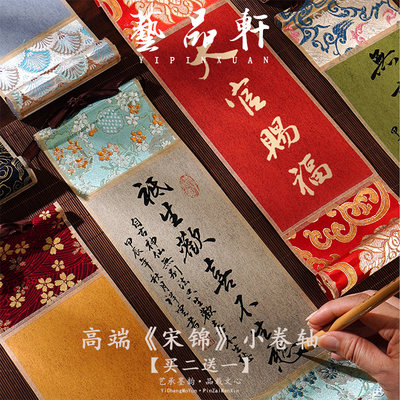 藝品軒
YIPINXUAN
天官賜福
祇生歡喜不生
自古神仙無別法只生歡喜
甲辰年秋月
高端《宋锦》小卷轴
【买二送一】
艺承墨韵·品载文心
YiChengMoYun·PinZaiWenXin